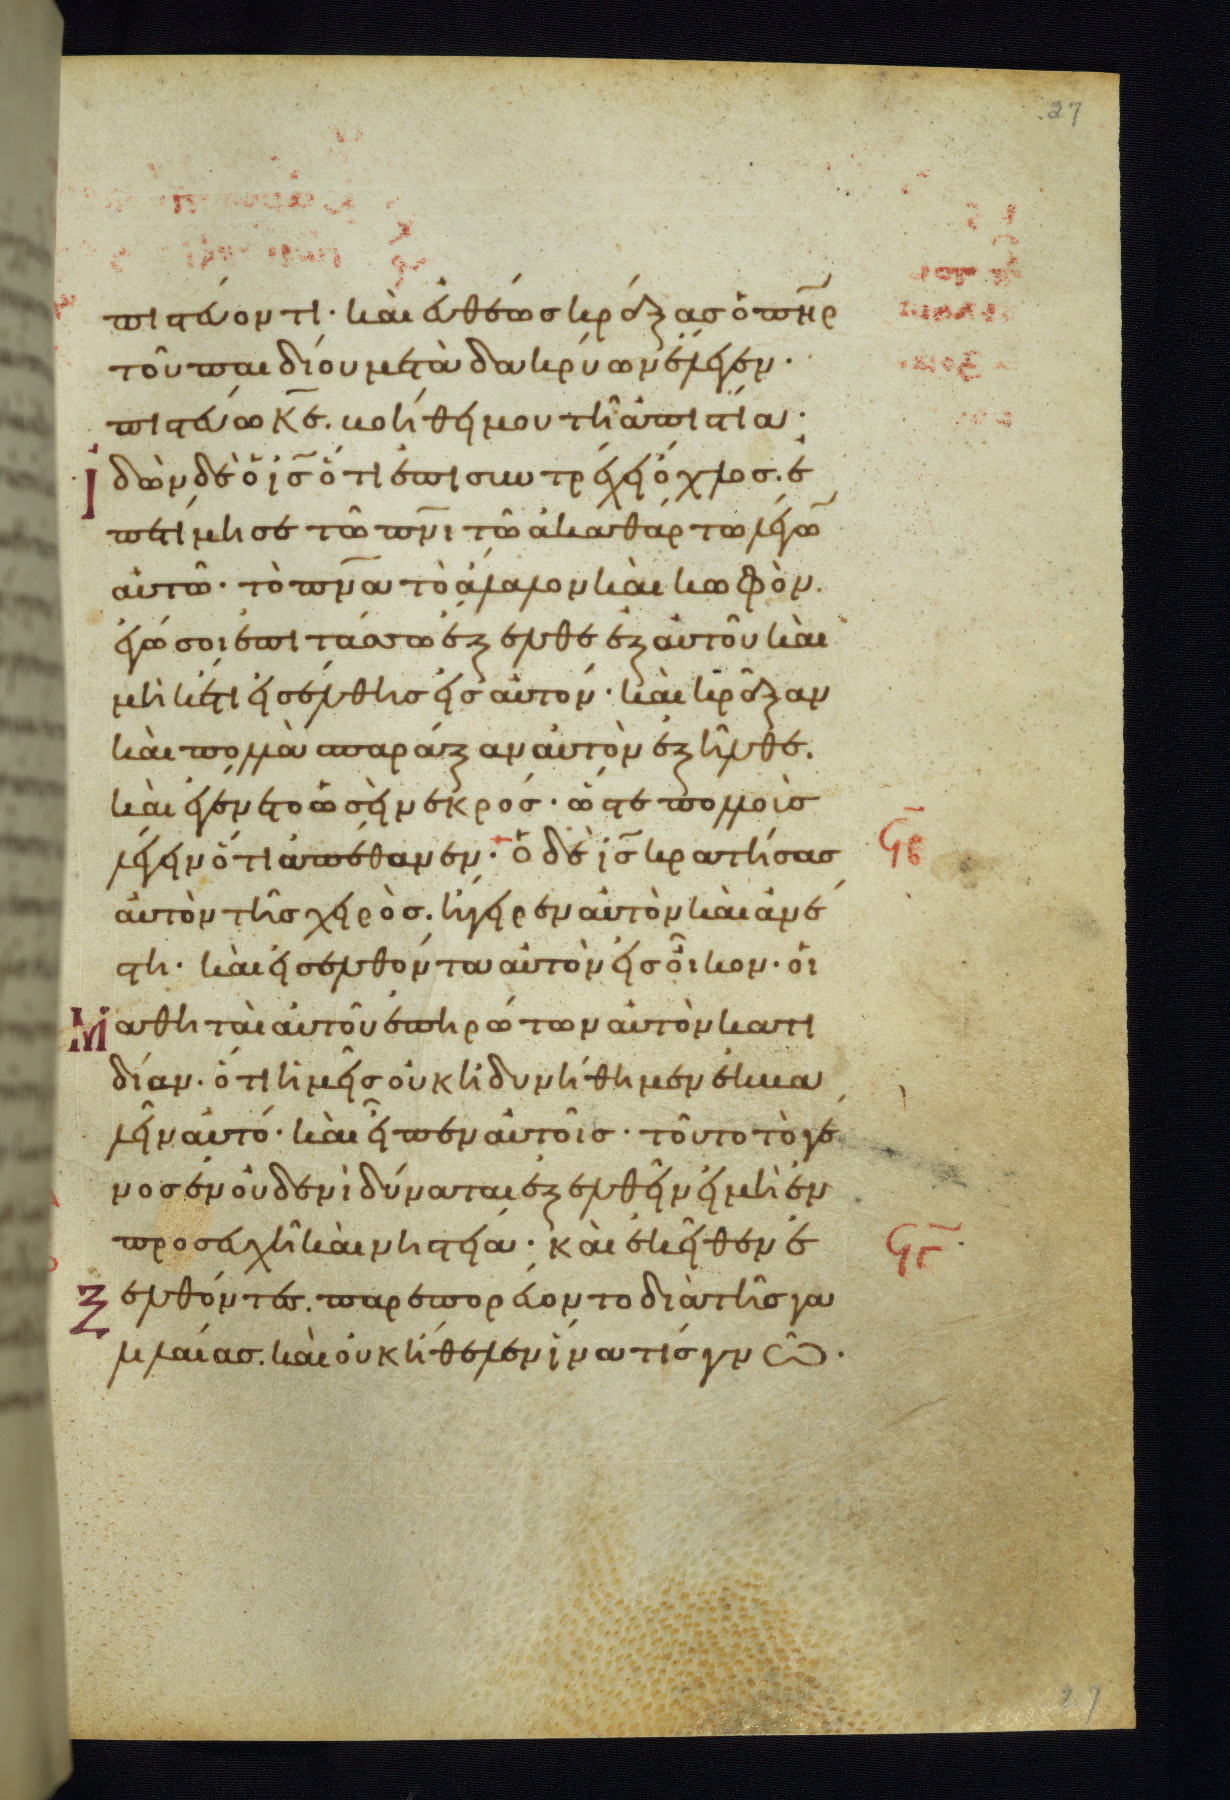 27
πιστεύοντι· καὶ εὐθέως κράξας ὁ πη̅ρ
τοῦ παιδίου μετὰ δακρύων ἔλεγεν·
πιστεύω κ̅ε̅. βοήθει μου τῆ ἀπιστία·
Ἰδὼν δὲ ὁ ι̅ς̅ ὅτι ἐπισυντρέχει ὄχλος. ἐ
πετίμησε τῶ πν̅ι τῶ ἀκαθάρτω λέγω̅
αὐτῶ· τὸ πν̅α τὸ ἄλαλον καὶ κωφὸν.
ἐγώ σοι ἐπιτάσσω ἔξελθε ἐξ αὐτοῦ καὶ
μὴ κέτι εἰσέλθης εἰς αὐτόν· καὶ κράξαν
καὶ πολλὰ σπαράξαν αὐτὸν ἐξῆλθε.
καὶ ἐγένετο ὡσεὶ νεκρός· ὥστε πολλοὺς
λέγειν ὅτι ἀπέθανεν· ὁ δὲ ι̅ς̅ κρατήσας
αὐτὸν τῆς χειρὸς. ἤγειρεν αὐτὸν καὶ ἀνέ
στη· καὶ εἰσελθόντα αὐτὸν εἰς οἶκον· οἱ
Μαθηταὶ αὐτοῦ ἐπηρώτων αὐτὸν κατι
δίαν· ὅτι ἡμεῖς οὐκ ἠδυνήθημεν ἐκβα
λεῖν αὐτό· καὶ εἶπεν αὐτοῖς· τοῦτο τὸ γέ
νος ἐν οὐδενὶ δύναται ἐξελθεῖν εἰ μὴ ἐν
προσευχῆ καὶ νηστεία· καὶ ἐκεῖθεν ἐ
Ξελθόντες. παρεπορεύοντο διὰ τῆς γα
λιλαίας. καὶ οὐκ ἤθελεν ἵνα τίς γνῶ·
ϥβ
ϥγ
27